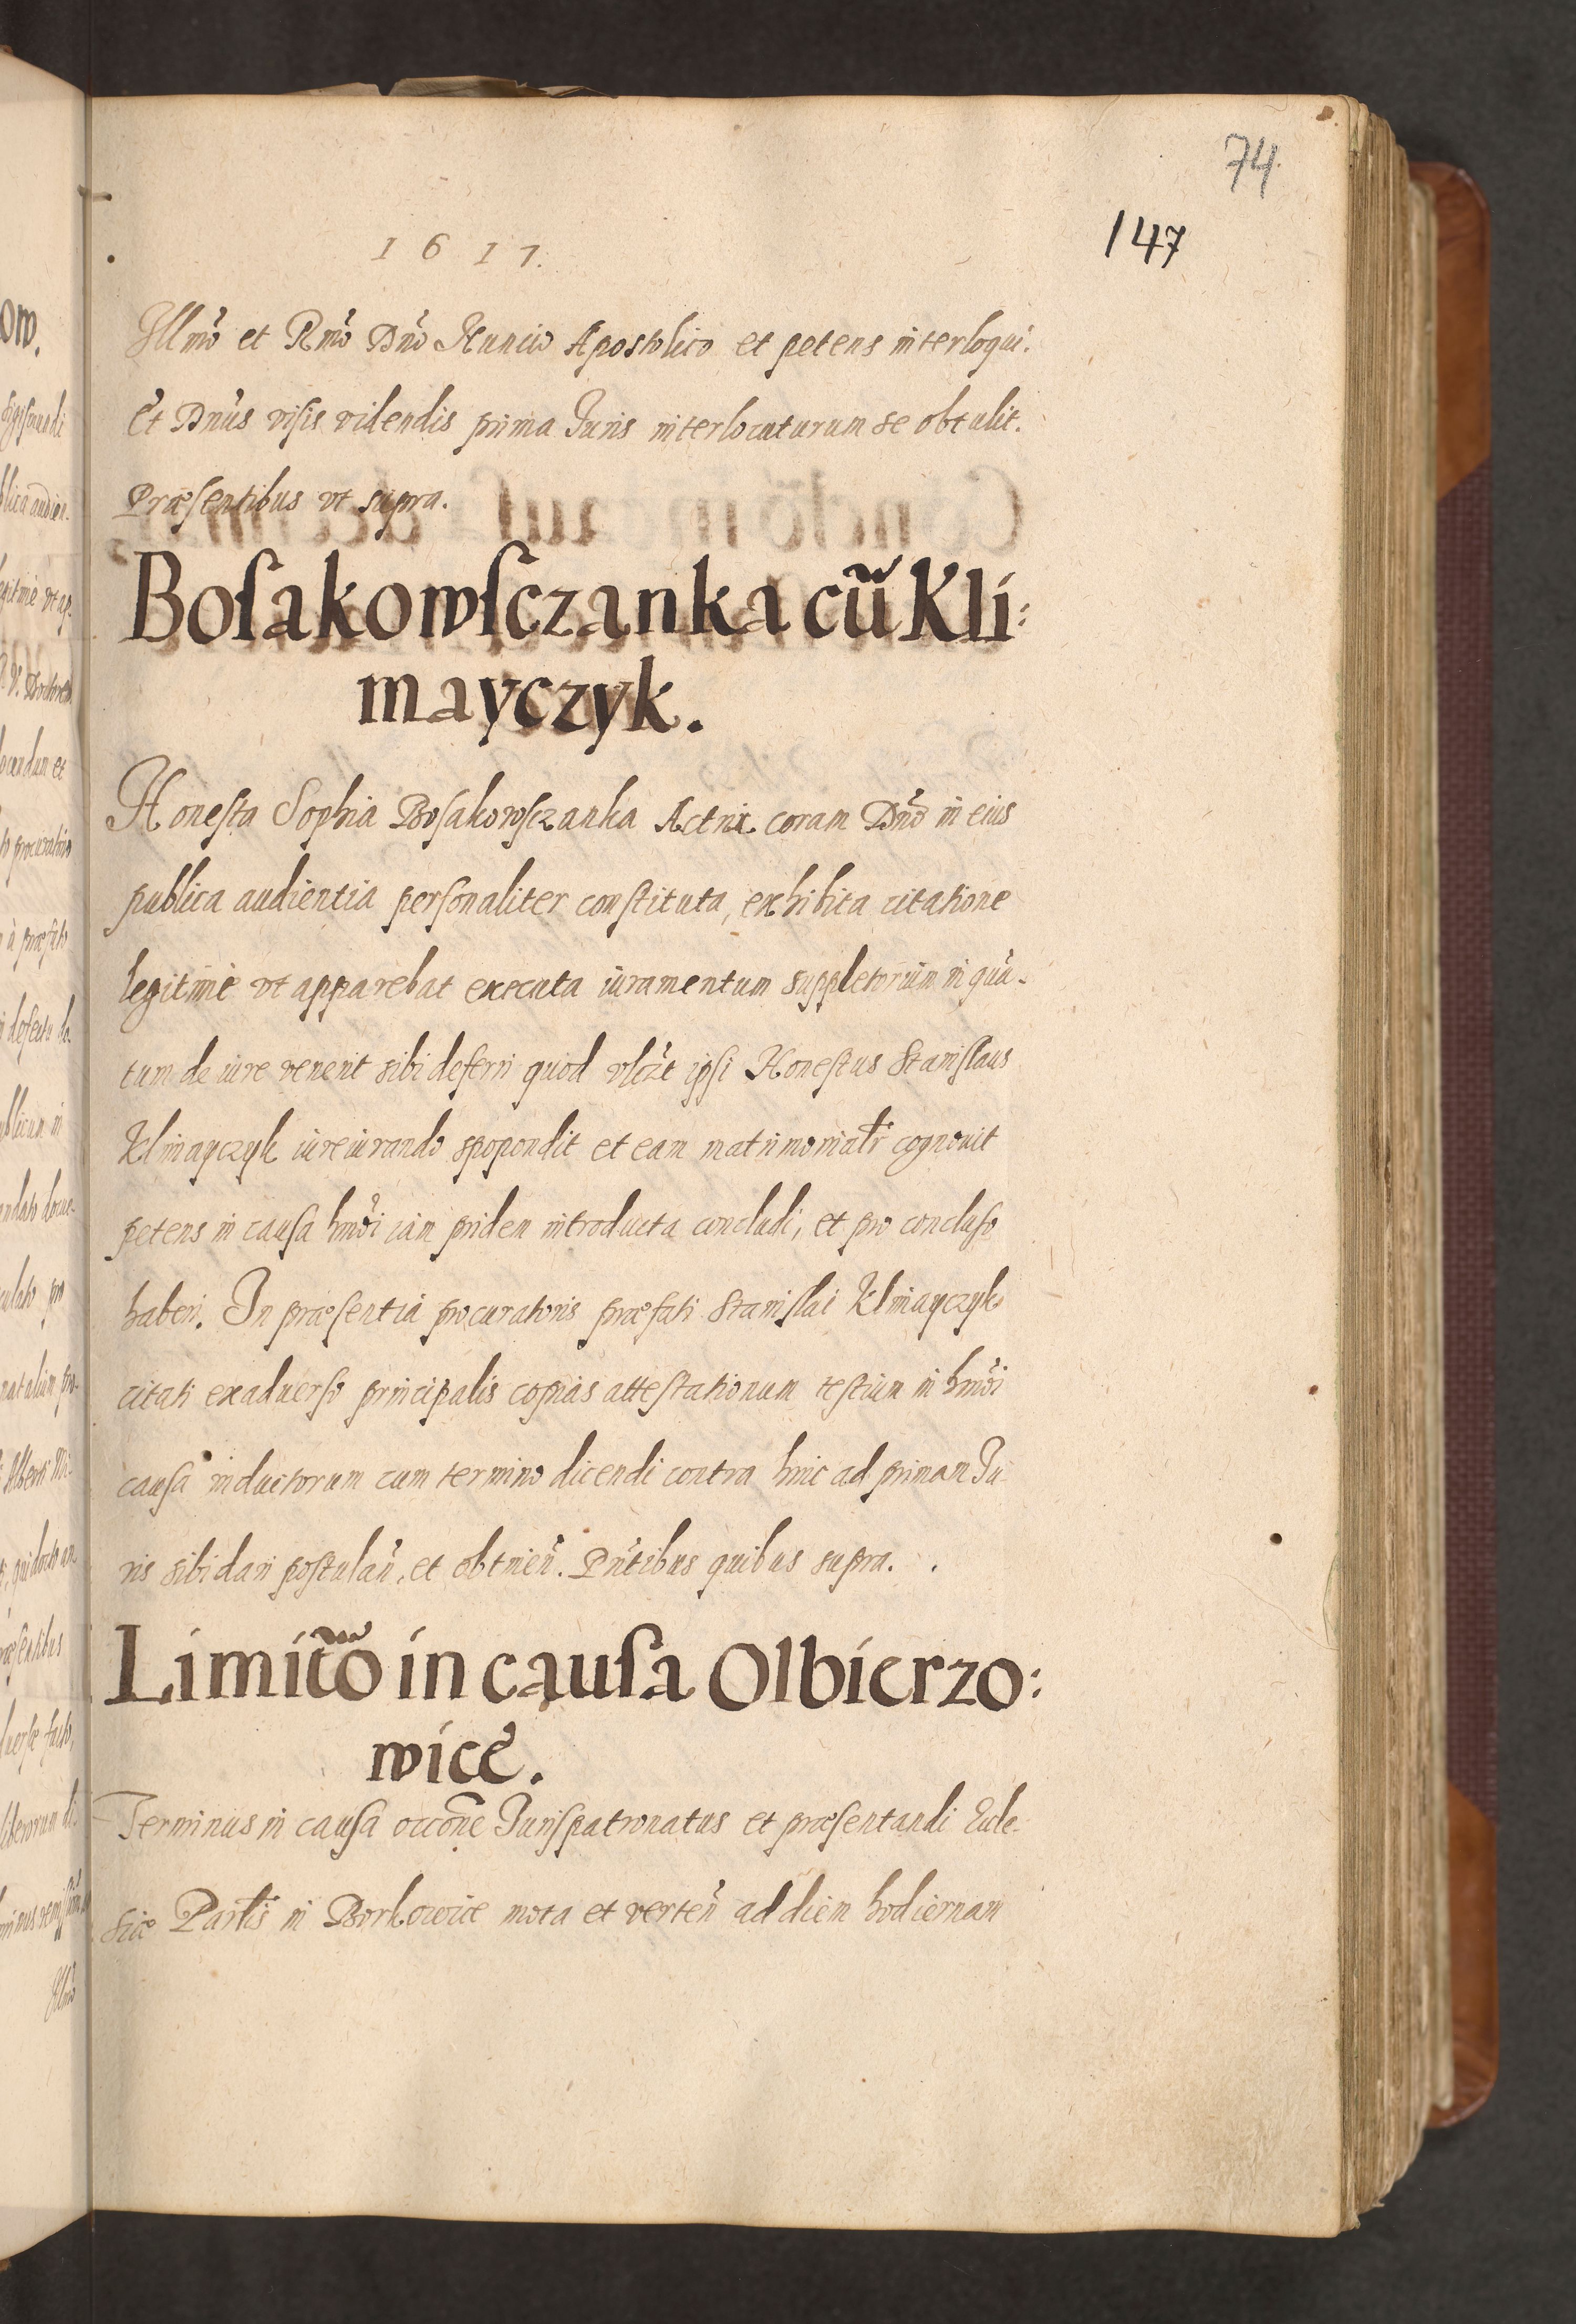 74
147
1617.
Jllmo et Rmo Dno Nuncio Apostolico et petens interloqui.
Et Dnus visis videndis prima Juris interlocuturum se obtulit.
Præsentibus vt supra.
Bosakowsczanka cũ Kli:
mayczyk.
Honesta Sophia Bosakowsczanka Actrix coram Dno in eius
publica audientia personaliter constituta, exhibita citatione
legitime vt apparebat executa iuramentum suppletorium in quã-
tum de iure venerit sibi deferri quod ipsi Honestus Stanislaus
Klimayczyk iureiurando spopondit et eam matrimonialr cognouit
petens in causa hmoi iam pridem introducta concludi, et pro concluso
haberi. In præsentia procuratoris præfati Stanislai Klimayczyk
citati exaduerso principalis copias attestationum testium in hmoi
causa inductorum cum termino dicendi contra hinc ad primam Ju
ris sibi dari postulañ, et obtineñ. Pntibus quibus supra.
Limitõ in causa Olbierzo:
wice.
Terminus in causa occõne Jurispatronatus et præsentandi Eccle-
siæ Parlis in Borkowice mota et verteñ ad diem hodiernam